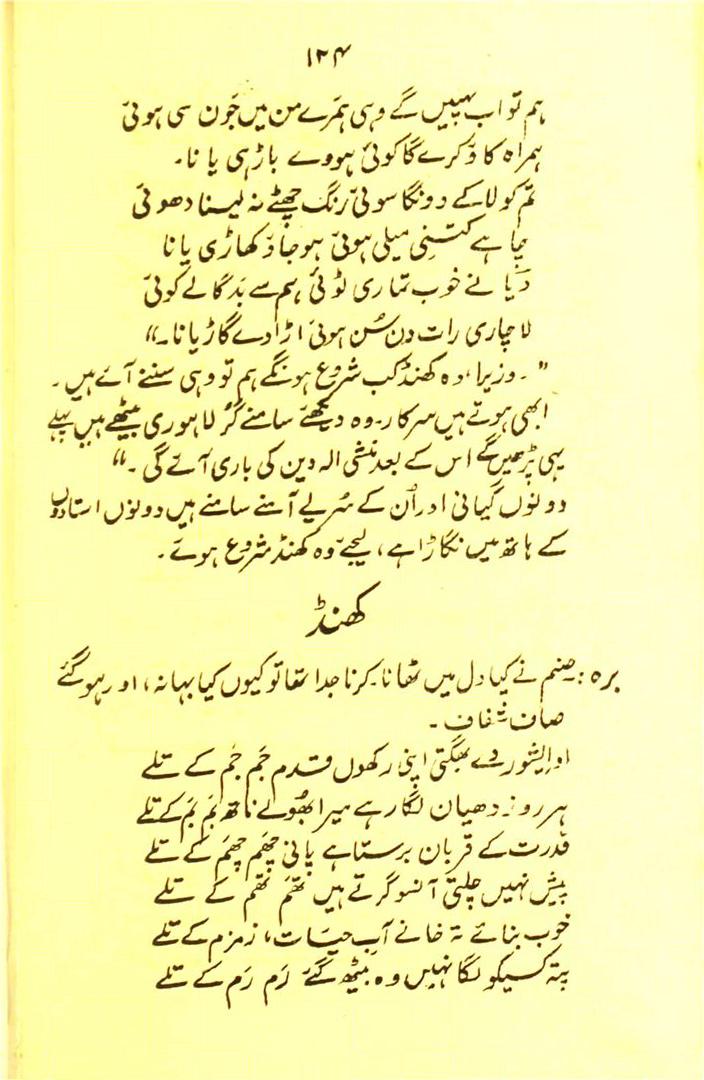 ۱۲۴
ہم تو اب پہنیں گے وہی ہمرے من میں جون سی ہوئی
ہمراہ کا دکرے گا کوئی ہووے باڑہی یا نا۔
تم کو لا کے دونگا سوئی رنگ چھٹے نہ لینا دھوئی
چاہے کتنی میلی ہوئی ہو جاؤ کھاڑی یا نا
دیّا نے خوب تماری لوئی ہم سے بدگالے کوئی
لاچاری رات دن سُن ہوئی اڑا دے گاڑیانا۔“
”۔ وزیرا، وہ کھنڈ کب شروع ہونگے ہم تو وہی سننے آئے ہیں۔
ابھی ہوتے ہیں سرکار۔ وہ دیکھئے سامنے گُر لاہوری بیٹھے ہیں پہلے
یہی پڑھیں گے اس کے بعد منشی الہ دین کی باری آئے گی۔“
دونوں گیانی اور اُن کے سُریے آمنے سامنے ہیں دونوں استادوں
کے ہاتھ میں نگاڑا ہے، لیجیے وہ کھنڈ شروع ہوئے۔
کھنڈ
برہ: صنم نے کیا دل میں ٹھانا۔ کرنا جدا تھا تو کیوں کیا بہانہ، اور ہو گئے
صاف شفاف۔
او ایشور دے بھگتی اپنی رکھوں قدم جَم جَم کے تلے
ہر روز دھیان لگا رہے میرا بھولے ناتھ بَم بَم کے تلے
قدرت کے قربان برستا ہے پانی چھَم چھَم کے تلے
پیش نہیں چلتی آنسو گرتے ہیں تھَم تھَم کے تلے
خوب بنائے تہ خانے آبِ حیات، زمزم کے تلے
پتہ کسیکو لگا نہیں وہ بیٹھ گئے رَم رَم کے تلے